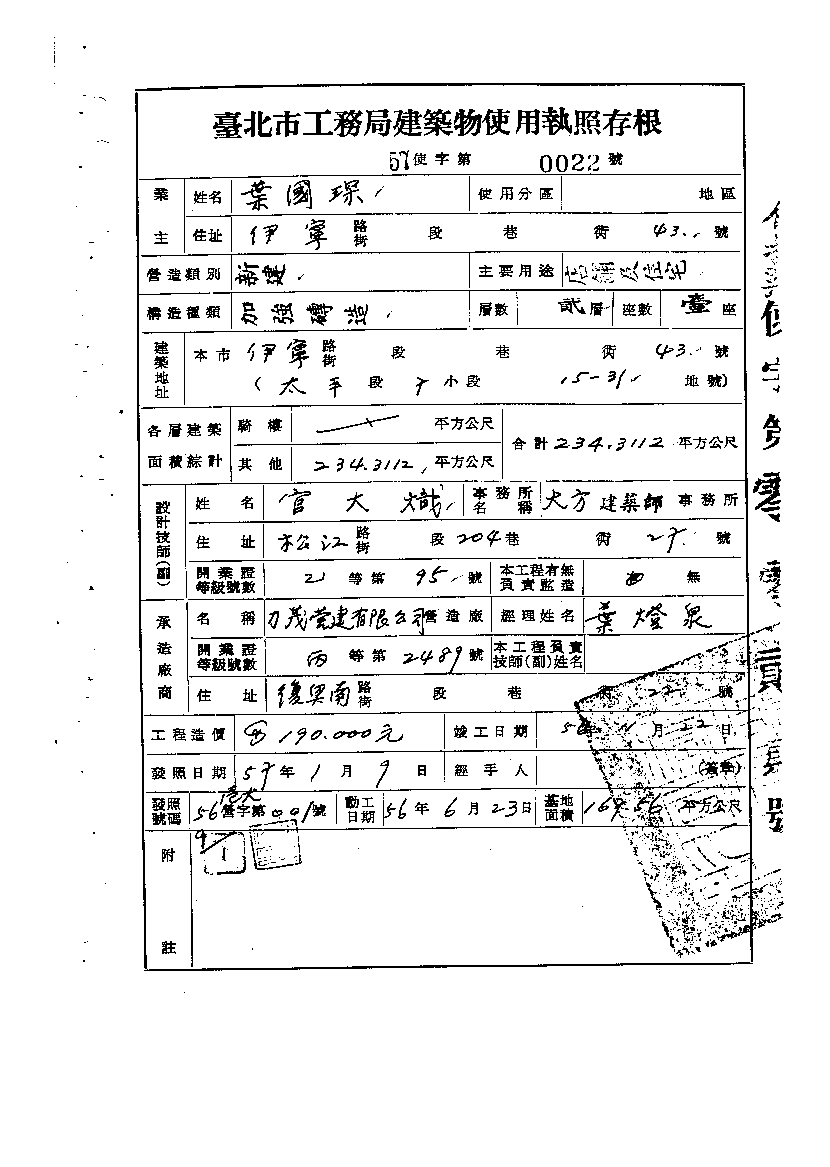 臺北市工務局建築物使用執照存根
57使字第 0022 號
業主 姓名 葉國琛 使用分區 地區
住址 伊寧 路街 段 巷 衖 43. 號
營造類別 新建 主要用途 店鋪及住宅
構造種類 加強磚造 層數 貳層 座數 壹座
建築地址 本市 伊寧 路街 段 巷 衖 43. 號
(太平段 小段 15-31 地號)
各層建築面積綜計 騎樓 平方公尺 合計 234.3112 平方公尺
其他 234.3112 平方公尺
設計技師(副) 姓名 官大熾 事務所名稱 大方建築師事務所
住址 松江 路街 段 204 巷 衖 號
開業證等級號數 等第 95 號 本工程有無負責監造 無
承造廠商 名稱 力茂營建有限公司營造廠 經理姓名 葉燈泉
開業證等級號數 丙等第 2489 號 本工程負責技師(副)姓名
住址 復興南 路街 段 巷 衖 22 號
工程造價 190.000元 竣工日期 月 22 日
發照日期 57年1月9日 經手人 (蓋章)
發照號碼 56 營字第 001 號 動工日期 56年6月23日 基地面積 169.56 平方公尺
附註
使字第零零貳貳號